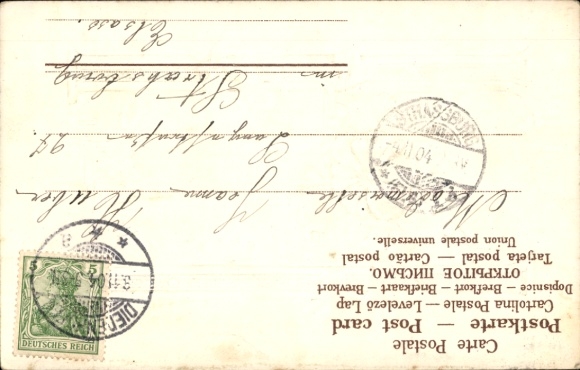 Carte Postale
Postkarte — Post card
Cartolina Postale — Levelező Lap
Dopisnice — Brefkort — Briefkaart — Brevkort
ОТКРЫТОЕ ПИСЬМО.
Tarjeta postal — Cartão postal
Union postale universelle.
5 5
DEUTSCHES REICH
3.11.04
STRASSBURG
11.04
Mademoiselle Jeanne Huber
Langstrasse
in Strassburg
Elsass.